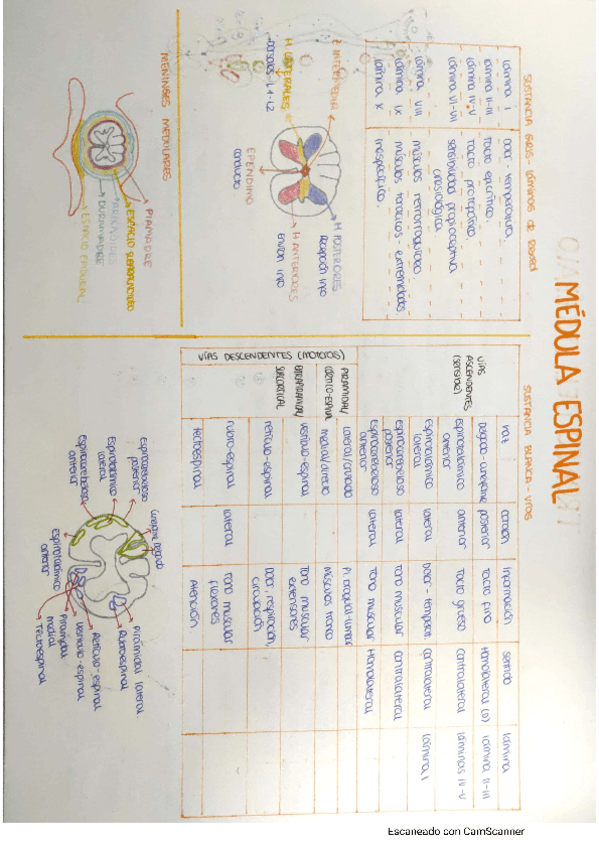 MÉDULA ESPINAL
SUSTANCIA GRIS - láminas de Rexed
lámina I dolor, temperatura
lámina II-III tacto epicrítico
lámina IV-V tacto protopático
lámina VI-VII sensibilidad propioceptiva
lámina VIII músculos
lámina IX músculos torácicos - extremidades
lámina X inespecífico
H. LATERALES
torsoles - L1-L2
EPENDIMO
conducto
H. POSTERIORES
Recepción info
H. ANTERIORES
envían info
MENINGES MEDULARES
PIAMADRE
ESPACIO SUBARACNOIDEO
ARACNOIDES
DURAMADRE
ESPACIO EPIDURAL
SUSTANCIA BLANCA - VÍAS
Haz cordón Información sentido lámina
VÍAS ASCENDENTES (sensitivas)
posterior Tacto fino Homolateral (D) lámina II-III
espinotalámico anterior anterior Tacto grueso contralateral láminas IV-V
espinotalámico lateral lateral Dolor - temperat. contralateral lámina I
espinocerebeloso posterior lateral Tono muscular contralateral
espinocerebeloso anterior lateral Tono muscular Homolateral
VÍAS DESCENDENTES (MOTORAS)
PIRAMIDAL/
lateral/cruzado
medial/directo Músculos tronco
EXTRAPIRAMIDAL/
SUBCORTICAL
vestíbulo-espinal Tono muscular extensores
retículo-espinal Dolor, respiración, circulación
rubro-espinal lateral Tono muscular flexores
tectoespinal Atención
espinocerebeloso posterior
espinotalámico lateral
espinocerebeloso anterior
espinotalámico anterior
Piramidal lateral
Rubroespinal
Retículo-espinal
Vestíbulo-espinal
Piramidal medial
Tectoespinal
Escaneado con CamScanner